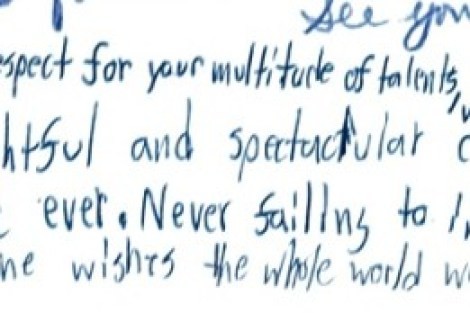 See you
espect for your multitude of talents,
htful and spectacular
ever. Never failing to
ne wishes the whole world w